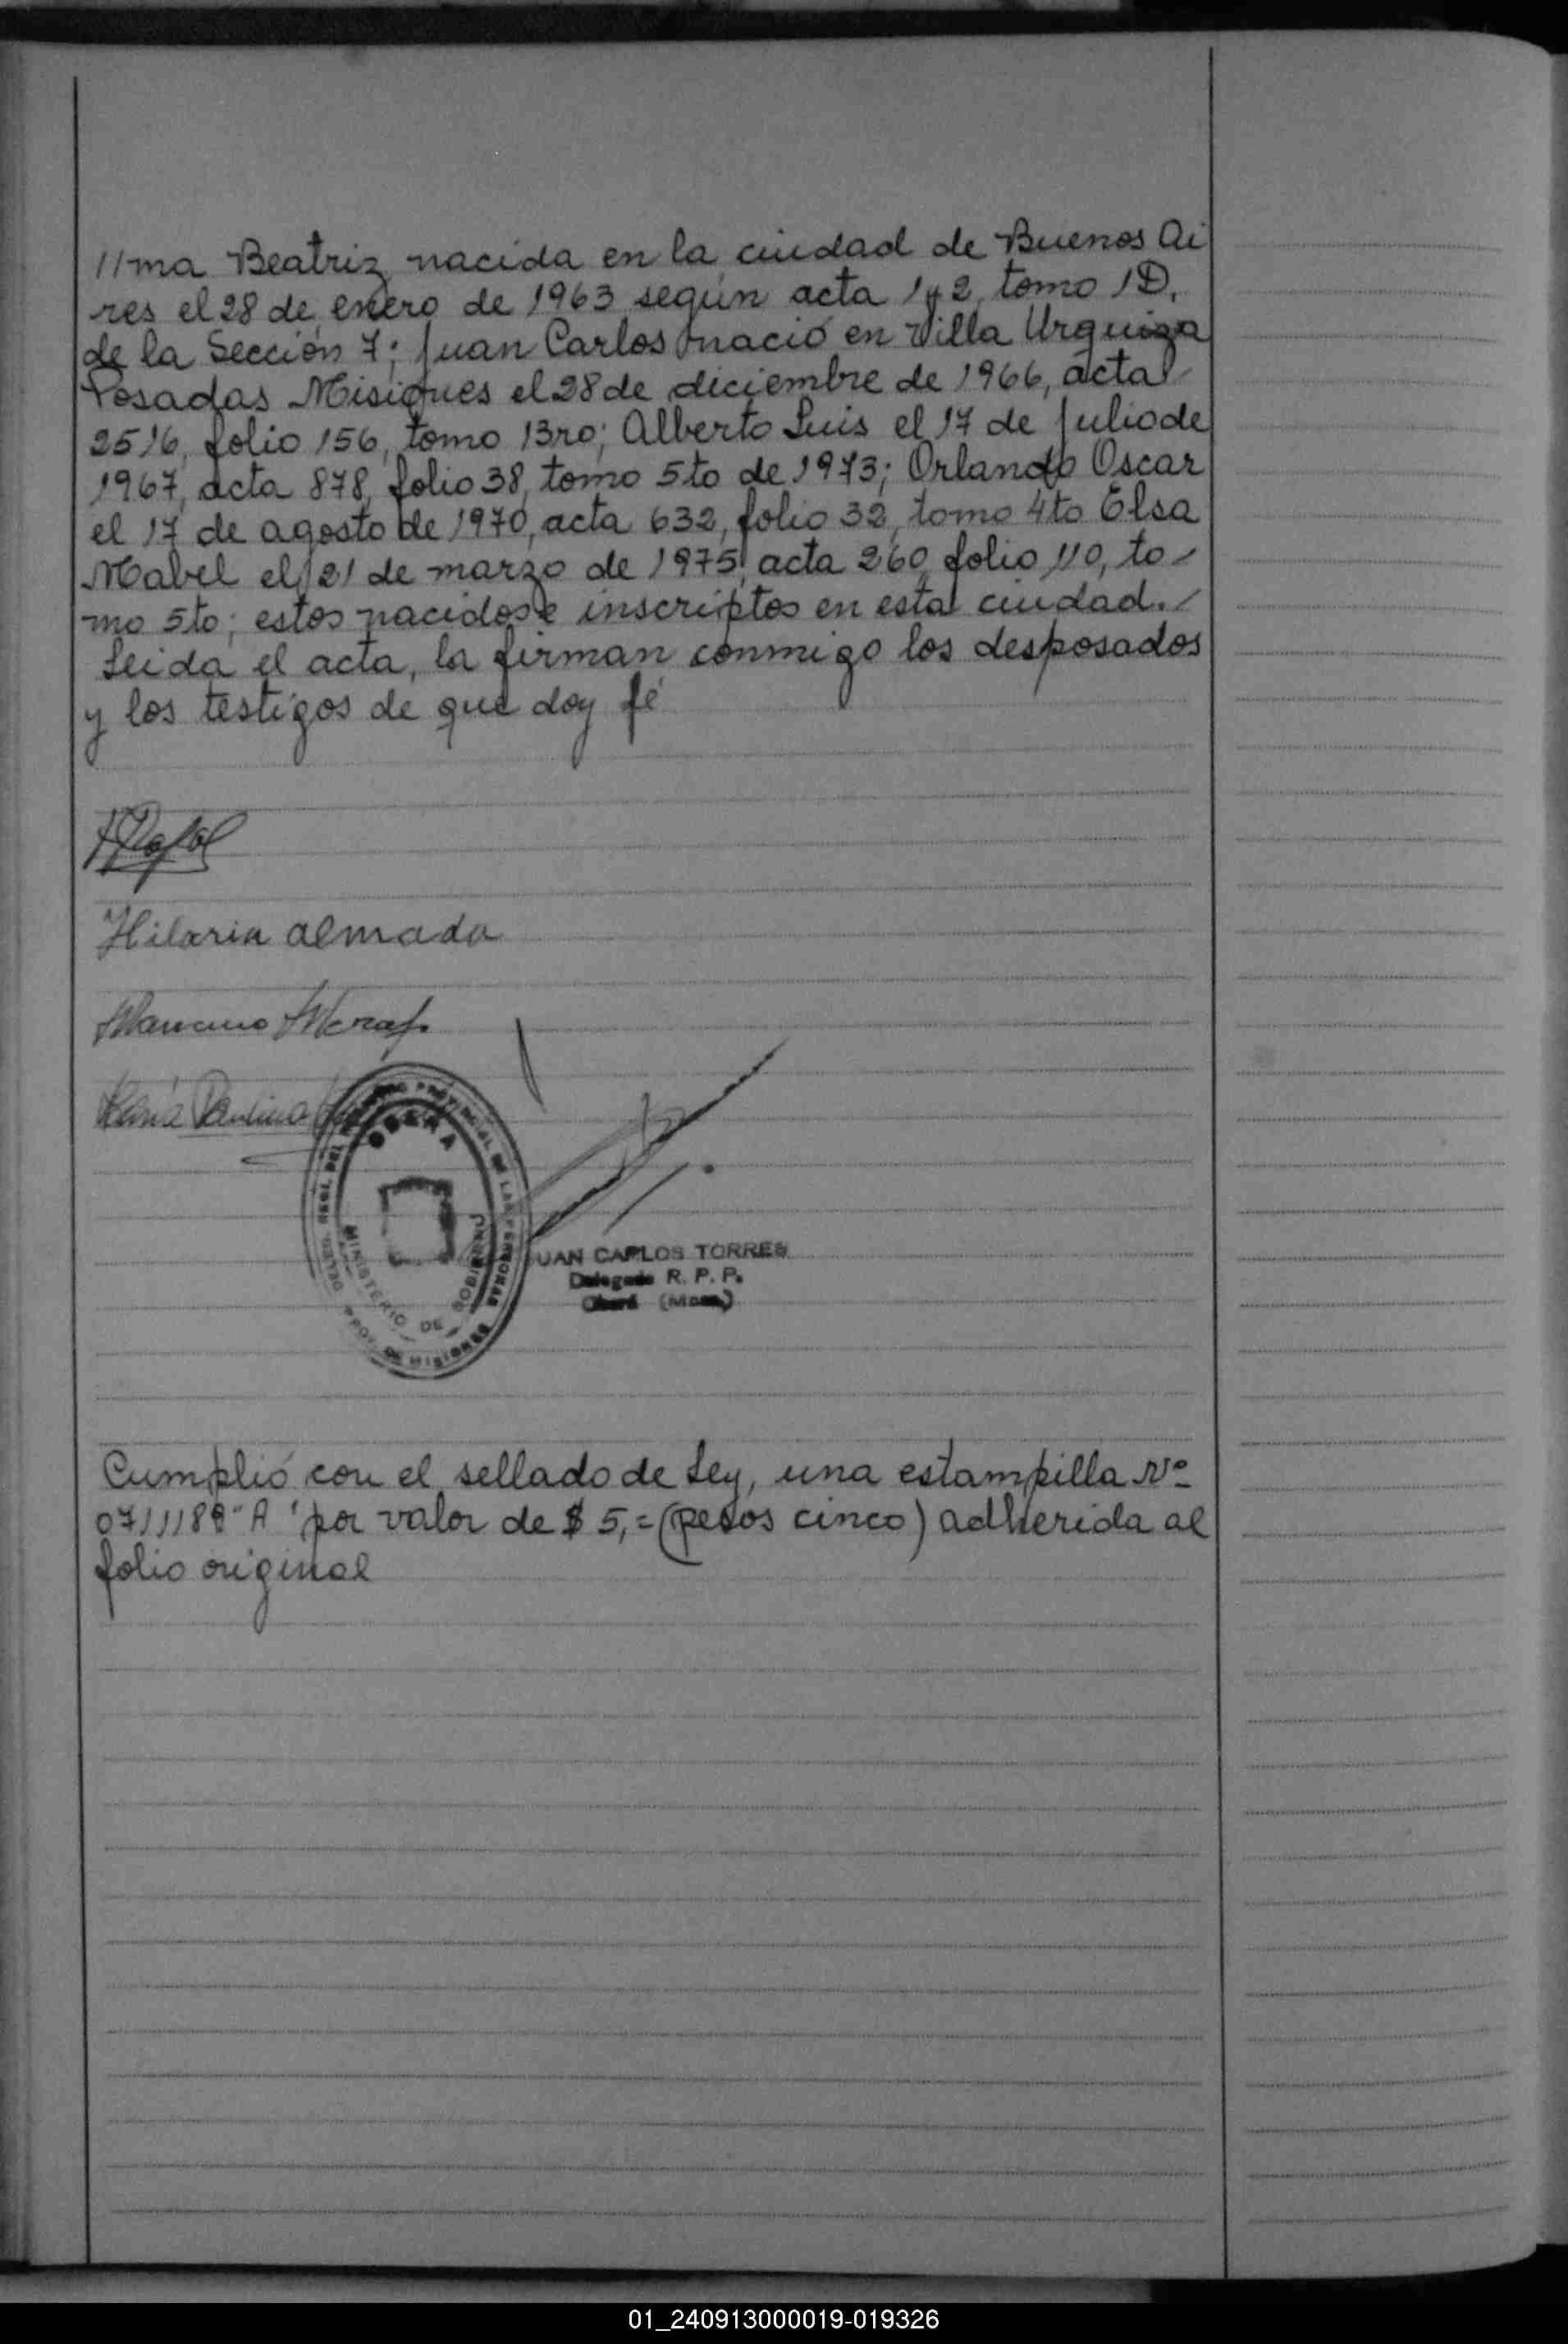 //ma Beatriz nacida en la ciudad de Buenos Ai
res el 28 de enero de 1963 según acta 1 y 2, tomo 1D,
de la Sección 7; Juan Carlos nació en Villa Urquiza
Posadas Misiones el 28 de diciembre de 1966, acta
2516, folio 156, tomo 13ro; Alberto Luis el 17 de Julio de
1967, acta 878, folio 38, tomo 5to de 1973; Orlando Oscar
el 17 de agosto de 1970, acta 632, folio 32, tomo 4to Elsa
Mabel el 21 de marzo de 1975, acta 260 folio 110, to-
mo 5to; estos nacidos e inscriptos en esta ciudad.-
Leida el acta, la firman conmigo los desposados
y los testigos de que doy fé
Hilaria Almada
OBERA
MINISTERIO DE GOBIERNO
DELEG. REGL. DEL REGISTRO PROVINCIAL DE LAS PERSONAS
PROV. DE MISIONES
JUAN CARLOS TORRES
Delegado R. P. P.
Oberá (Mnes.)
Cumplió con el sellado de Ley, una estampilla Nº
"A" por valor de $ 5,= (pesos cinco) adherida al
folio original
01_240913000019-019326